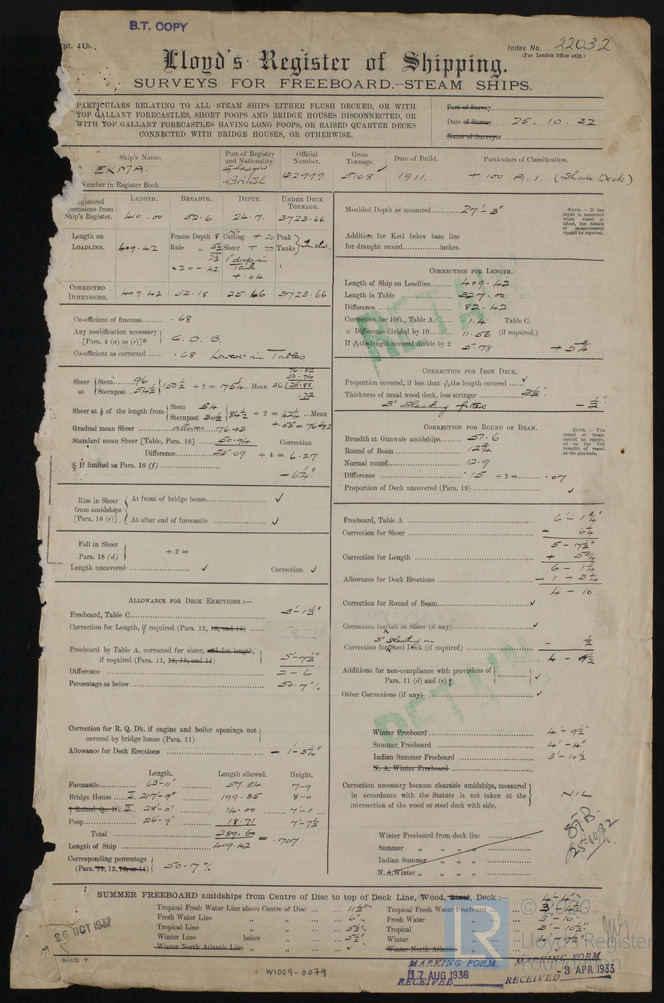 B.T. COPY
Index No. 22032
(For London Office only.)
Lloyd's Register of Shipping.
SURVEYS FOR FREEBOARD.—STEAM SHIPS.
PARTICULARS RELATING TO ALL STEAM SHIPS EITHER FLUSH DECKED, OR WITH
TOP GALLANT FORECASTLES, SHORT POOPS AND BRIDGE HOUSES DISCONNECTED, OR
WITH TOP GALLANT FORECASTLES HAVING LONG POOPS, OR RAISED QUARTER DECKS
CONNECTED WITH BRIDGE HOUSES, OR OTHERWISE.
Port of Survey
Date of Survey 25.10.32
Name of Surveyor
Ship's Name. Port of Registry and Nationality. Official Number. Gross Tonnage. Date of Build. Particulars of Classification.
EKMA. Glasgow British 132999 5108 1911. + 100 A.1. (Shade Deck)
Number in Register Book
LENGTH. BREADTH. DEPTH. UNDER DECK TONNAGE.
Ship's Register. 410.00 52.6 24.7 3723.66
Length on LOADLINE. 409.42 Frame Depth Ceiling Peak
Rule Sheer Tanks
×2 = -.42
CORRECTED DIMENSIONS. 409.42 52.18 25.66 3723.66
Co-efficient of fineness .68
Any modification necessary
[Para. 4 (a) to (e)]* C.D.B.
Co-efficient as corrected .68 Lowest in Tables
Sheer at Stem 96 Sternpost 54½ 150½ ÷ 2 = 75¼ Mean
Sheer at ⅛ of the length from Stem 54 Sternpost 30½ 84½ ÷ 2 = 42¼ Mean
Gradual mean Sheer 76.03
Standard mean Sheer [Table, Para. 18] 50.94 Correction
Difference 25.09 ÷ 4 = 6.27
§ If limited as Para. 18 (f) - 6¼"
Rise in Sheer from amidships [Para. 18 (e)] At front of bridge house ✓
At after end of forecastle ✓
Fall in Sheer Para. 18 (d) ÷ 2 =
Length uncovered ✓ Correction ✓
ALLOWANCE FOR DECK ERECTIONS :—
Freeboard, Table C 3'-1½"
Correction for Length, if required (Para. 12, 13, and 14)
Freeboard by Table A. corrected for sheer, and for length, if required (Para. 11, 12, 13, and 14) 5'-7½"
Difference 2-6
Percentage as below 50.7%
Correction for R. Q. Dk. if engine and boiler openings not covered by bridge house (Para. 11)
Allowance for Deck Erections - 1'-3¼"
Length. Length allowed. Height.
Forecastle 63'-11" 57.54 7-9
Bridge House 217'-9" 199.35 8-0
Raised Qr. Dk. II 28'-0" 14.00 7'-0
Poop 26'-9" 18.71 7'-7½
Total 289.60 = .707
Length of Ship 409.42
Corresponding percentage (Para. 11, 12, 13, or 14) 50.7%
Moulded Depth as measured 27'-3"
Addition for Keel below base line
for draught record inches.
CORRECTION FOR LENGTH.
Length of Ship on Loadline 409.42
Length in Table 327.00
Difference 82.42
Correction for 10ft., Table A. 1.4 Table C.
× Difference divided by 10 11.56 (if required.)
If 6/10ths length covered divide by 2 5.78 + 5¾
CORRECTION FOR IRON DECK.
Proportion covered, if less than 7/10ths length covered ✓
Thickness of usual wood deck, less stringer 3½"
3" Sheathing fitted - ½"
CORRECTION FOR ROUND OF BEAM.
Breadth at Gunwale amidships 51.6
Round of Beam 12¾
Normal round 12.9
Difference .15 ÷ 2 = .07
Proportion of Deck uncovered (Para. 19) ✓
Freeboard, Table A 6'-1¾"
Correction for Sheer - 6¼
5-7½
Correction for Length + 5¾
6-1¼
Allowance for Deck Erections - 1-3¼
4-10
Correction for Round of Beam ✓
Correction for fall in Sheer (if any) ✓
3" Sheathing on
Correction for Steel Deck (if required) - ½
Additions for non-compliance with provisions of Para. 11 (d) and (e) ✓
Other Corrections (if any) ✓
Winter Freeboard 4'-9½"
Summer Freeboard 4'-4"
Indian Summer Freeboard 3'-10½
N. A. Winter Freeboard
Correction necessary because clearside amidships, measured
in accordance with the Statute is not taken at the
intersection of the wood or steel deck with side. NIL
Winter Freeboard from deck line
Summer " " " "
Indian Summer " " " "
N. A. Winter " " " "
25.10.32
SUMMER FREEBOARD amidships from Centre of Disc to top of Deck Line, Wood, Steel, Deck :—
Tropical Fresh Water Line above Centre of Disc 11½" Tropical Fresh Water Freeboard
Fresh Water Line " " 6" Fresh Water "
Tropical Line " " 5½" Tropical "
Winter Line below " 5½" Winter "
Winter North Atlantic Line " " ✓ Winter North Atlantic "
26 OCT 1932
W1009-0079
MARKING FORM
17 AUG 1936
RECEIVED
MARKING FORM
RECEIVED - 3 APR 1933
RETAIN
RETAIN
© 2020
Lloyd's Register
Foundation